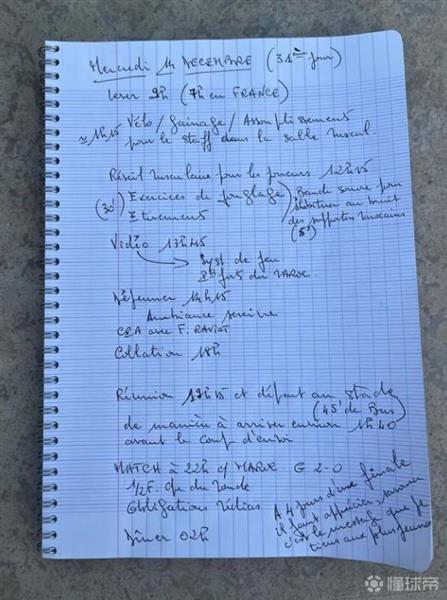 Mercredi 14 DECEMBRE (31ème jour)
Lever 9h (7h en FRANCE)
≈ 11h15 Vélo / Gainage / Assouplissement
pour le staff dans la salle muscul.
Réveil musculaire pour les joueurs 12h15
(30') Exercices de jonglage
Etirements
Bande sonore pour
s'habituer au bruit
des supporters marocains
(5')
Vidéo 13h45
Syst de jeu
Pts forts du MAROC
Déjeuner 14h15
Ambiance sereine
avec F. RAVIOT
Collation 18h
Réunion 19h15 et départ au stade
(45' de Bus)
de manière à arriver environ 1h40
avant le coup d'envoi
MATCH à 22h c/ MAROC G 2-0
1/2 F. du Monde
Obligations Médias
Dîner 02h
A 4 jours d'une finale
il faut apprécier, savourer
c'est le message que je
tiens aux plus jeunes
懂球帝